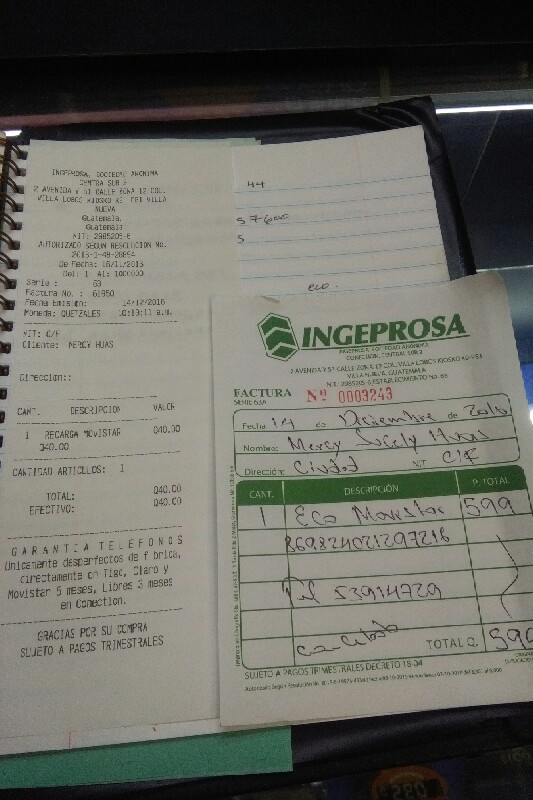 INGEPROSA, SOCIEDAD ANONIMA
CENTRA SUR 2
2 AVENIDA Y 51 CALLE ZONA 12 COL.
VILLA LOBOS KIOSKO K2 VILLA
NUEVA
Guatemala,
Guatemala
NIT: 2985205-6
AUTORIZADO SEGUN RESOLUCION No.
De Fecha: 16/11/2013
Del: 1 Al: 1000000
Serie : 63
Factura No. : 61950
Fecha Emision: 14/12/2016
Moneda: QUETZALES 10:19:11 a.m.
NIT: C/F
Cliente: MERCY HUAS
Direccion::
CANT. DESCRIPCION VALOR
1 RECARGA MOVISTAR Q40.00
Q40.00
CANTIDAD ARTICULOS: 1
TOTAL: Q40.00
EFECTIVO: Q40.00
GARANTIA TELEFONOS
Unicamente desperfectos de f brica,
directamente en Tigo, Claro y
Movistar 5 meses, Libres 3 meses
en Conection.
GRACIAS POR SU COMPRA
SUJETO A PAGOS TRIMESTRALES
44
5
eco.
INGEPROSA
INGEPROSA, SOCIEDAD ANONIMA
CONECCION, CENTRAL SUR 2
2 AVENIDA Y 51 CALLE ZONA 12 COL. VILLA LOBOS KIOSKO
VILLA NUEVA, GUATEMALA
NIT: 2985205-6 ESTABLECIMIENTO No. 68
FACTURA Nº 0003243
SERIE 63A
Fecha 14 de Diciembre de 2016
Nombre: Mercy Sucely Huas
Dirección: Ciudad NIT C/F
CANT. DESCRIPCIÓN P. TOTAL
1 Eco Movistar 599
869824021297216
Tel 53914729
Cancelado
TOTAL Q. 599
SUJETO A PAGOS TRIMESTRALES DECRETO 18-04